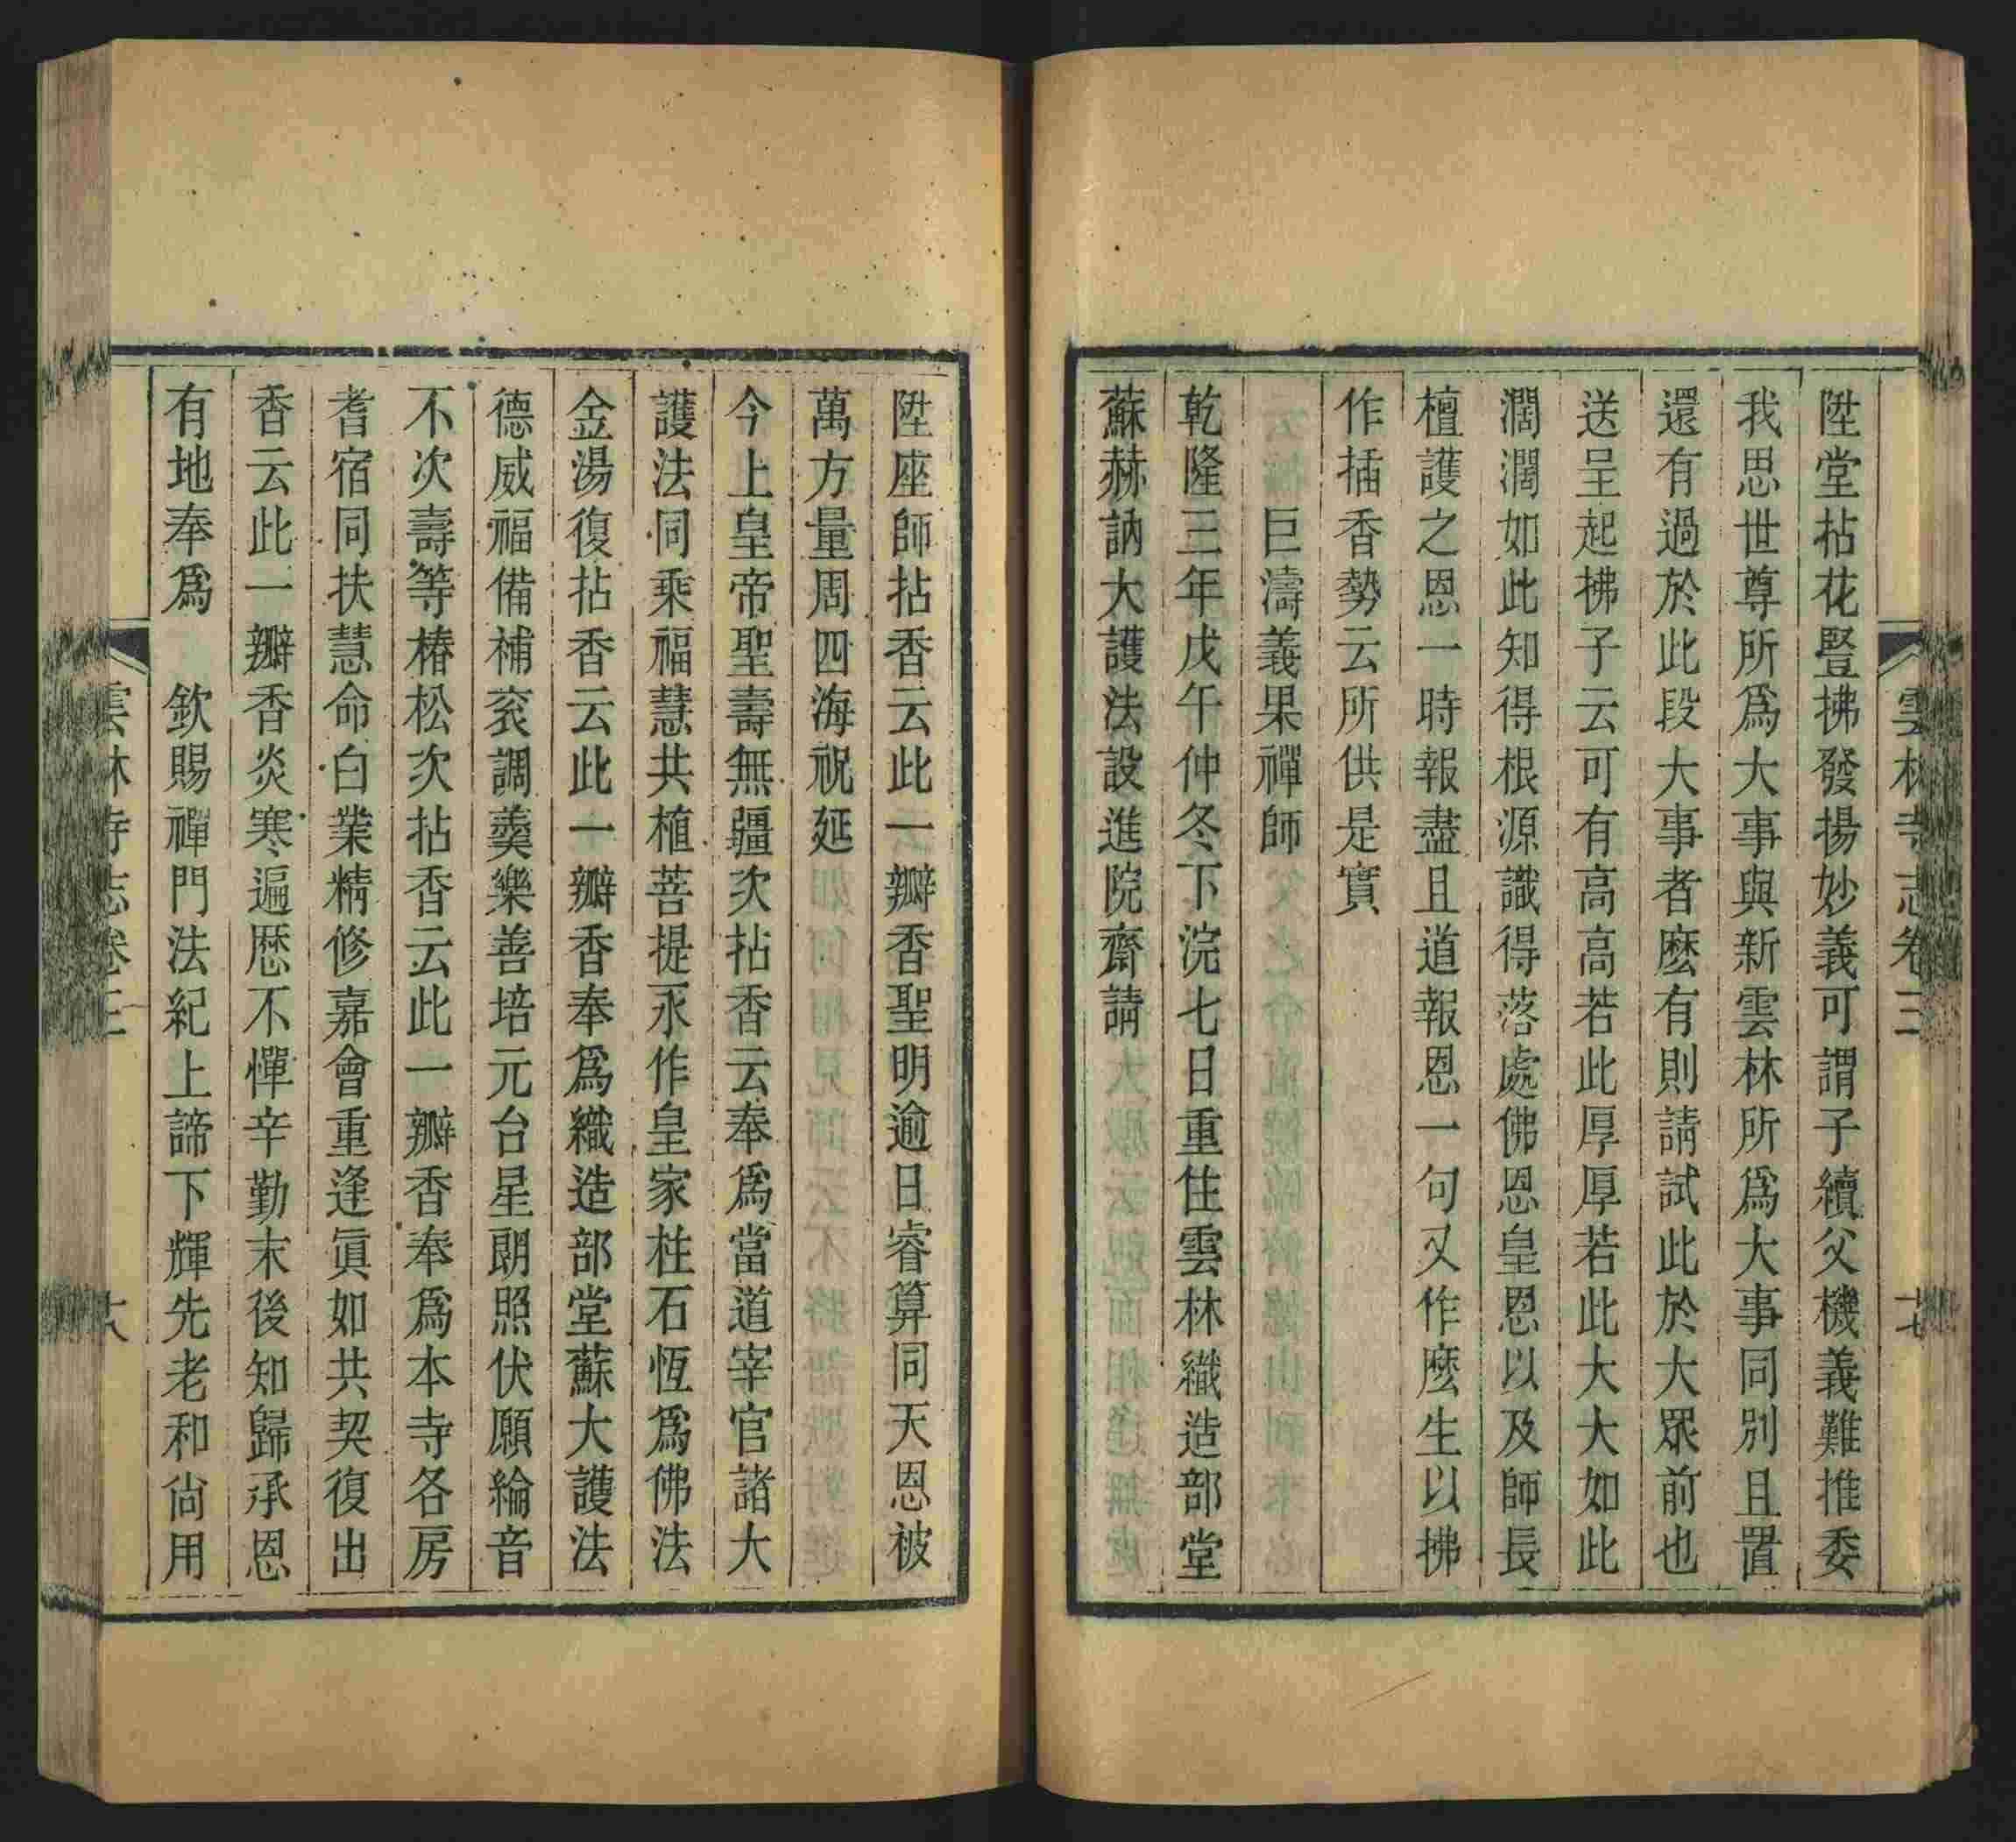 雲林寺志卷三 十七
陞堂拈花豎拂發揚妙義可謂子續父機義難推委
我思世尊所爲大事與新雲林所爲大事同別且置
還有過於此段大事者麼有則請試此於大眾前也
送呈起拂子云可有高高若此厚厚若此大大如此
濶濶如此知得根源識得落處佛恩皇恩以及師長
檀護之恩一時報盡且道報恩一句又作麼生以拂
作插香勢云所供是實
巨濤義果禪師
乾隆三年戊午仲冬下浣七日重住雲林織造部堂
蘇赫訥大護法設進院齋請
陞座師拈香云此一瓣香聖明逾日睿算同天恩被
萬方量周四海祝延
今上皇帝聖壽無疆次拈香云奉爲當道宰官諸大
護法同乘福慧共植菩提永作皇家柱石恆爲佛法
金湯復拈香云此一瓣香奉爲織造部堂蘇大護法
德威福備補袞調羹樂善培元台星朗照伏願綸音
不次壽等椿松次拈香云此一瓣香奉爲本寺各房
耆宿同扶慧命白業精修嘉會重逢眞如共契復出
香云此一瓣香炎寒遍歷不憚辛勤末後知歸承恩
有地奉爲 欽賜禪門法紀上諦下輝先老和尙用
雲林寺志卷三 十八